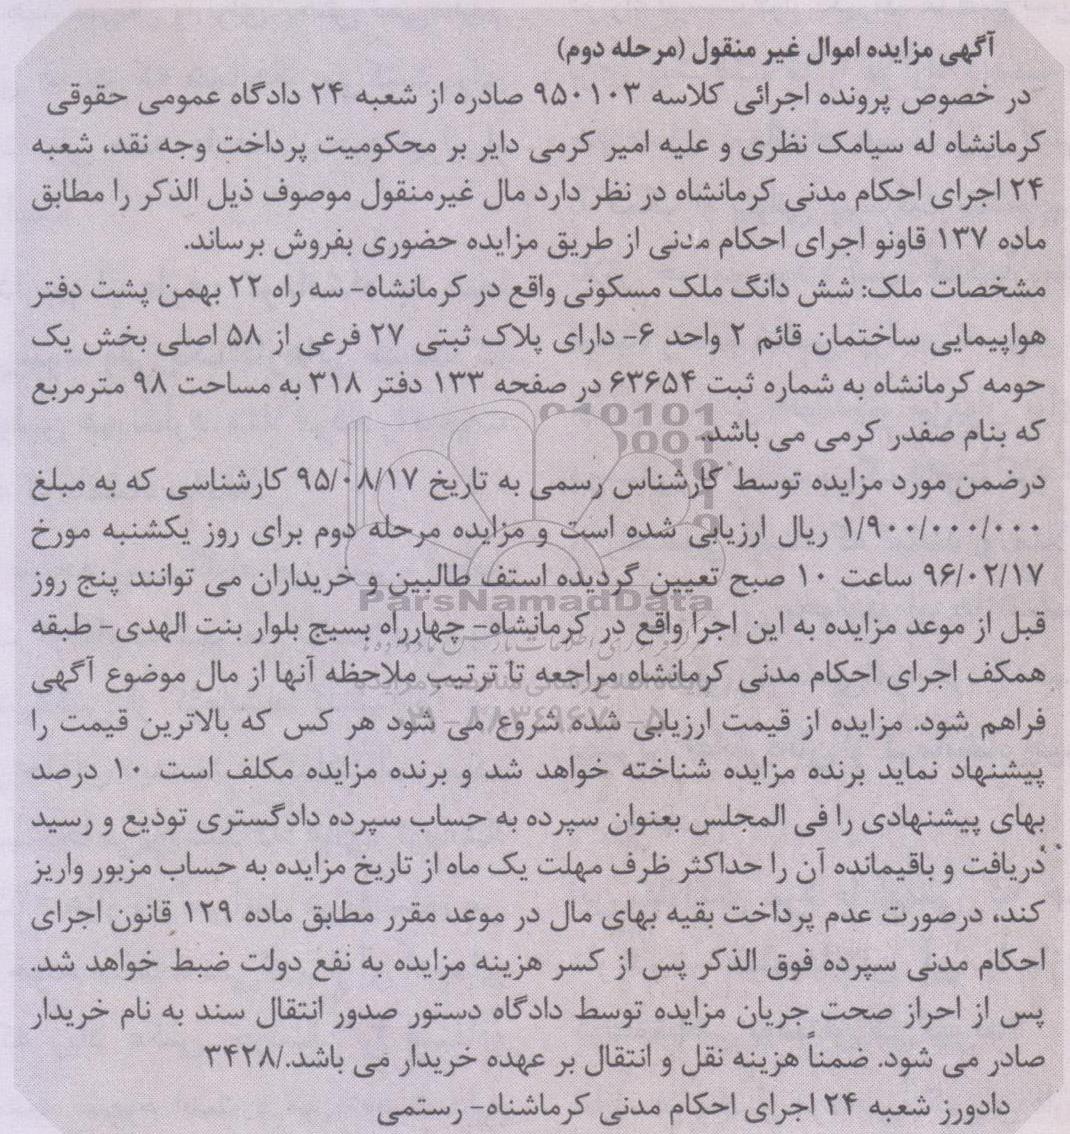 آگهی مزایده اموال غیر منقول (مرحله دوم)
در خصوص پرونده اجرائی کلاسه ۹۵۰۱۰۳ صادره از شعبه ۲۴ دادگاه عمومی حقوقی
کرمانشاه له سیامک نظری و علیه امیر کرمی دایر بر محکومیت پرداخت وجه نقد، شعبه
۲۴ اجرای احکام مدنی کرمانشاه در نظر دارد مال غیرمنقول موصوف ذیل الذکر را مطابق
ماده ۱۳۷ قاونو اجرای احکام مدنی از طریق مزایده حضوری بفروش برساند.
مشخصات ملک: شش دانگ ملک مسکونی واقع در کرمانشاه- سه راه ۲۲ بهمن پشت دفتر
هواپیمایی ساختمان قائم ۲ واحد ۶- دارای پلاک ثبتی ۲۷ فرعی از ۵۸ اصلی بخش یک
حومه کرمانشاه به شماره ثبت ۶۳۶۵۴ در صفحه ۱۳۳ دفتر ۳۱۸ به مساحت ۹۸ مترمربع
که بنام صفدر کرمی می باشد.
درضمن مورد مزایده توسط کارشناس رسمی به تاریخ ۹۵/۰۸/۱۷ کارشناسی که به مبلغ
۱/۹۰۰/۰۰۰/۰۰۰ ریال ارزیابی شده است و مزایده مرحله دوم برای روز یکشنبه مورخ
۹۶/۰۲/۱۷ ساعت ۱۰ صبح تعیین گردیده استف طالبین و خریداران می توانند پنج روز
قبل از موعد مزایده به این اجرا واقع در کرمانشاه- چهارراه بسیج بلوار بنت الهدی- طبقه
همکف اجرای احکام مدنی کرمانشاه مراجعه تا ترتیب ملاحظه آنها از مال موضوع آگهی
فراهم شود. مزایده از قیمت ارزیابی شده شروع می شود هر کس که بالاترین قیمت را
پیشنهاد نماید برنده مزایده شناخته خواهد شد و برنده مزایده مکلف است ۱۰ درصد
بهای پیشنهادی را فی المجلس بعنوان سپرده به حساب سپرده دادگستری تودیع و رسید
دریافت و باقیمانده آن را حداکثر ظرف مهلت یک ماه از تاریخ مزایده به حساب مزبور واریز
کند، درصورت عدم پرداخت بقیه بهای مال در موعد مقرر مطابق ماده ۱۲۹ قانون اجرای
احکام مدنی سپرده فوق الذکر پس از کسر هزینه مزایده به نفع دولت ضبط خواهد شد.
پس از احراز صحت جریان مزایده توسط دادگاه دستور صدور انتقال سند به نام خریدار
صادر می شود. ضمناً هزینه نقل و انتقال بر عهده خریدار می باشد./۳۴۲۸
دادورز شعبه ۲۴ اجرای احکام مدنی کرماشناه- رستمی
ParsNamadData